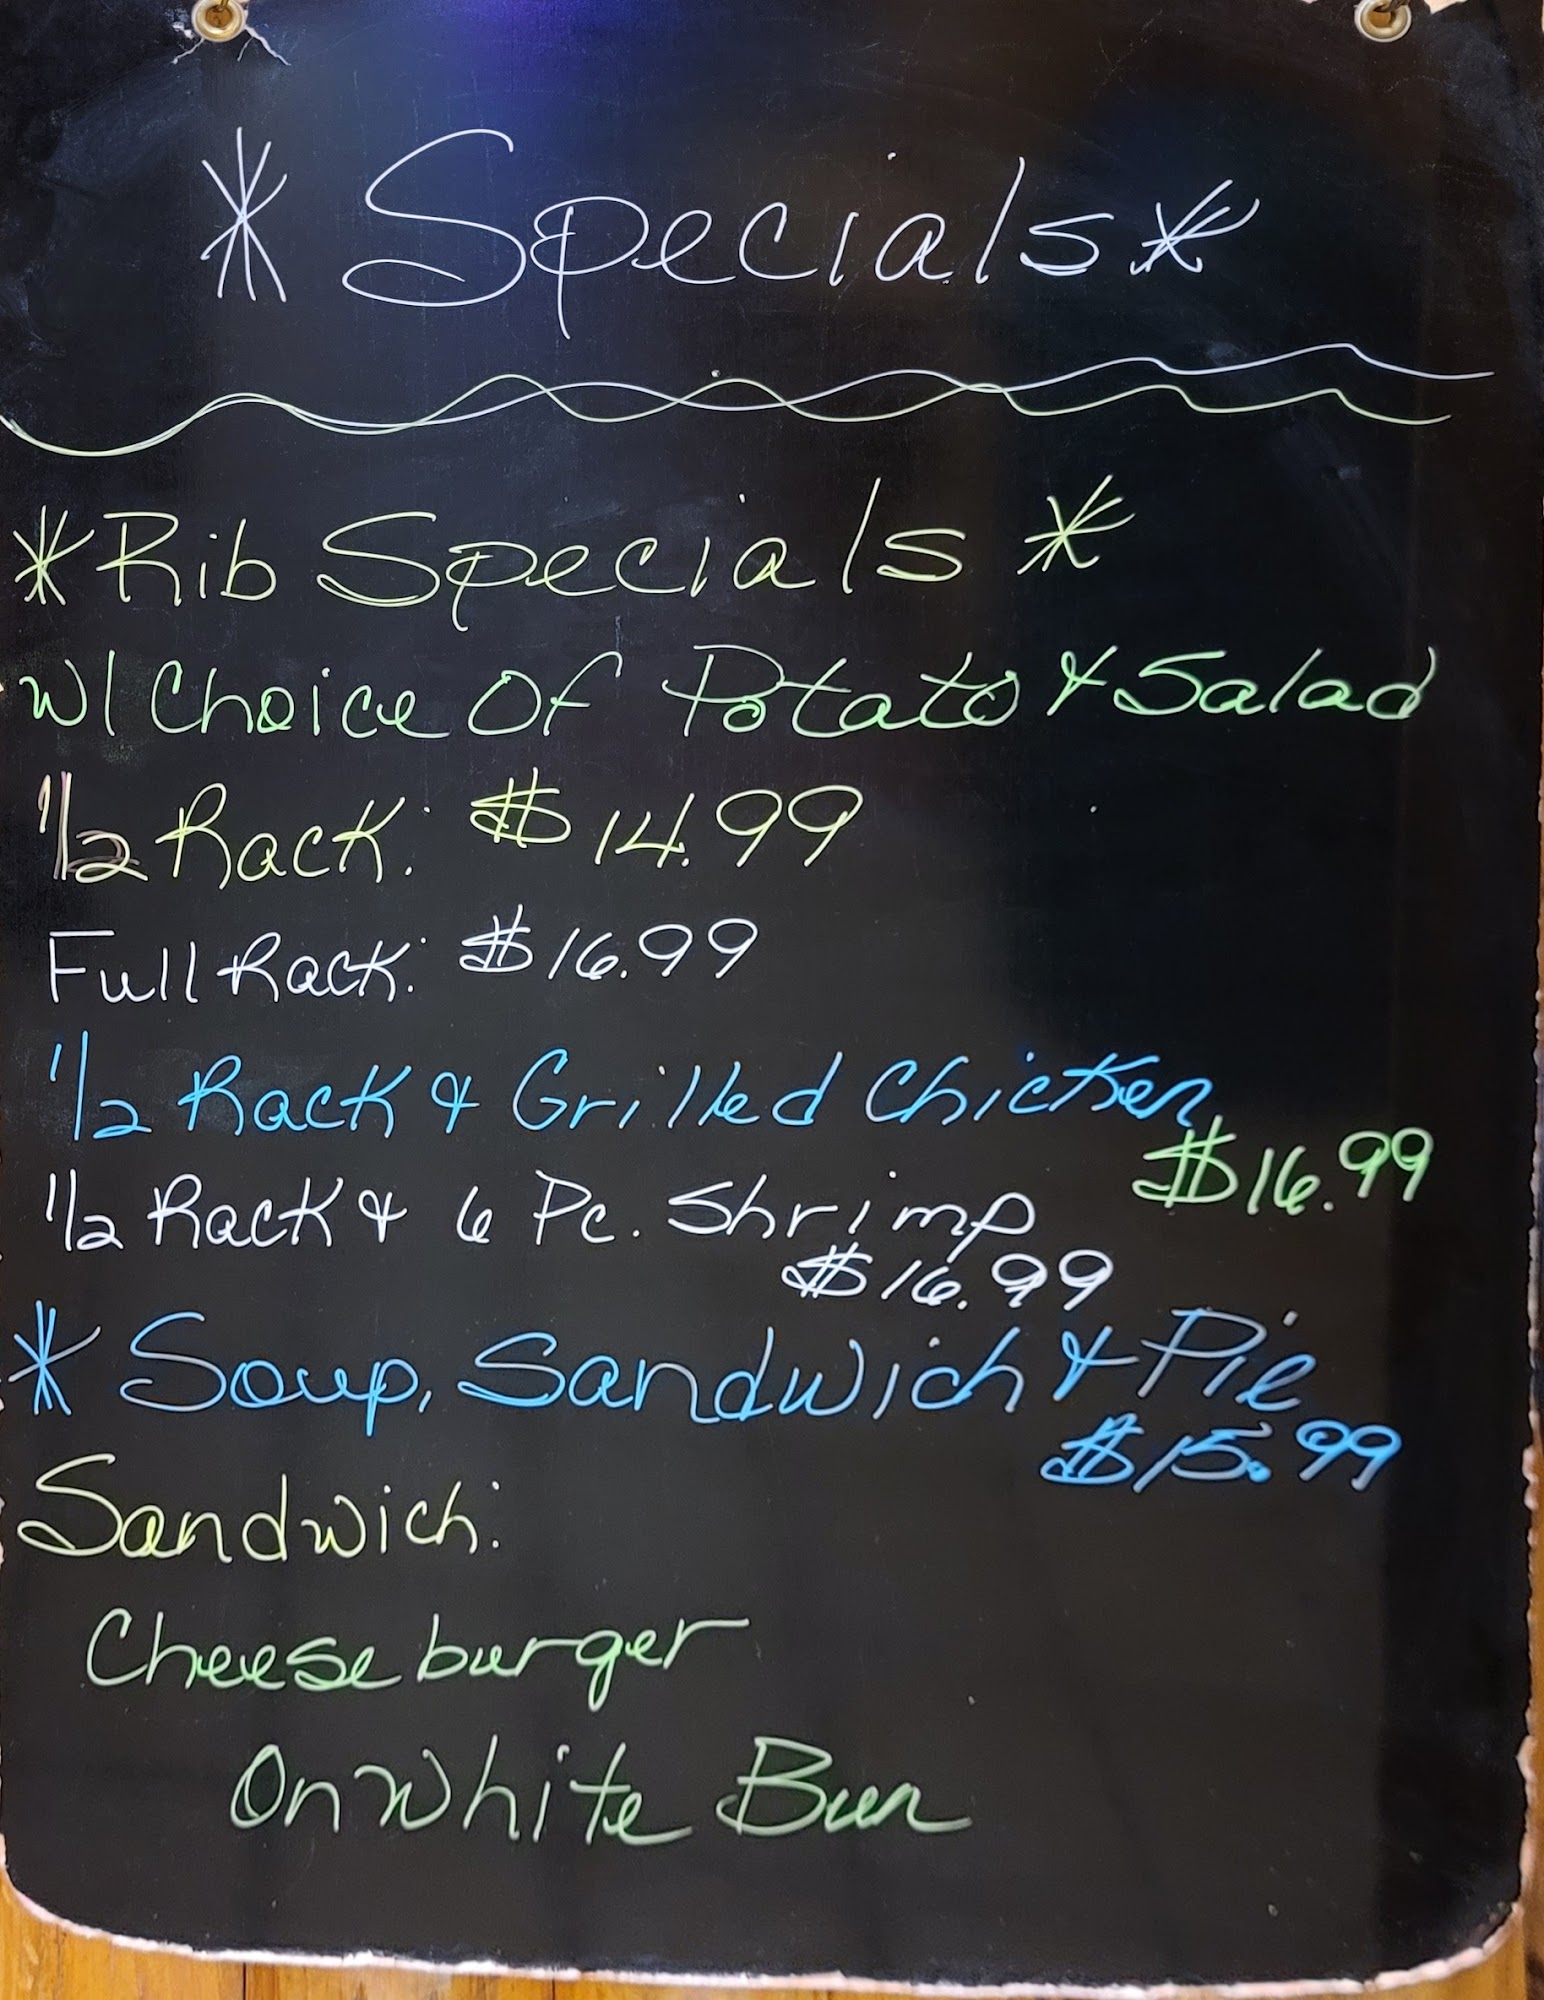 * Specials *
* Rib Specials *
w/ Choice Of Potato & Salad
1/2 Rack: $14.99
Full Rack: $16.99
1/2 Rack & Grilled Chicken
$16.99
1/2 Rack & 6 Pc. Shrimp
$16.99
* Soup, Sandwich & Pie
$15.99
Sandwich:
Cheeseburger
On White Bun